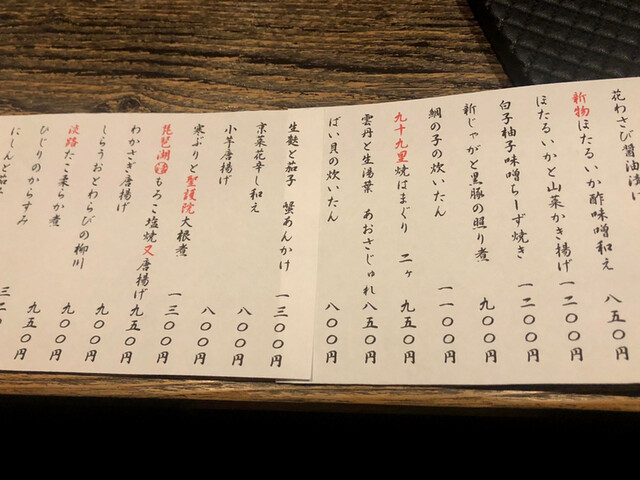 花わさび醤油漬け 八五〇円
新物ほたるいか酢味噌和え 一二〇〇円
ほたるいかと山菜かき揚げ 一二〇〇円
白子柚子味噌ちーず焼き 一二〇〇円
新じゃがと黒豚の照り煮 九〇〇円
鯛の子の炊いたん 一一〇〇円
九十九里焼はまぐり 二ヶ 九五〇円
雲丹と生湯葉 あおさじゅれ 八五〇円
ばい貝の炊いたん 八〇〇円
生麩と茄子 蟹あんかけ 一三〇〇円
京菜花辛し和え 八〇〇円
小芋唐揚げ 八〇〇円
寒ぶりと聖護院大根煮 一三〇〇円
琵琶湖もろこ塩焼又唐揚げ 九五〇円
わかさぎ唐揚げ 九〇〇円
しらうおとわらびの柳川 九〇〇円
淡路たこ柔らか煮 九五〇円
ひじりのからすみ
にしんと茄子